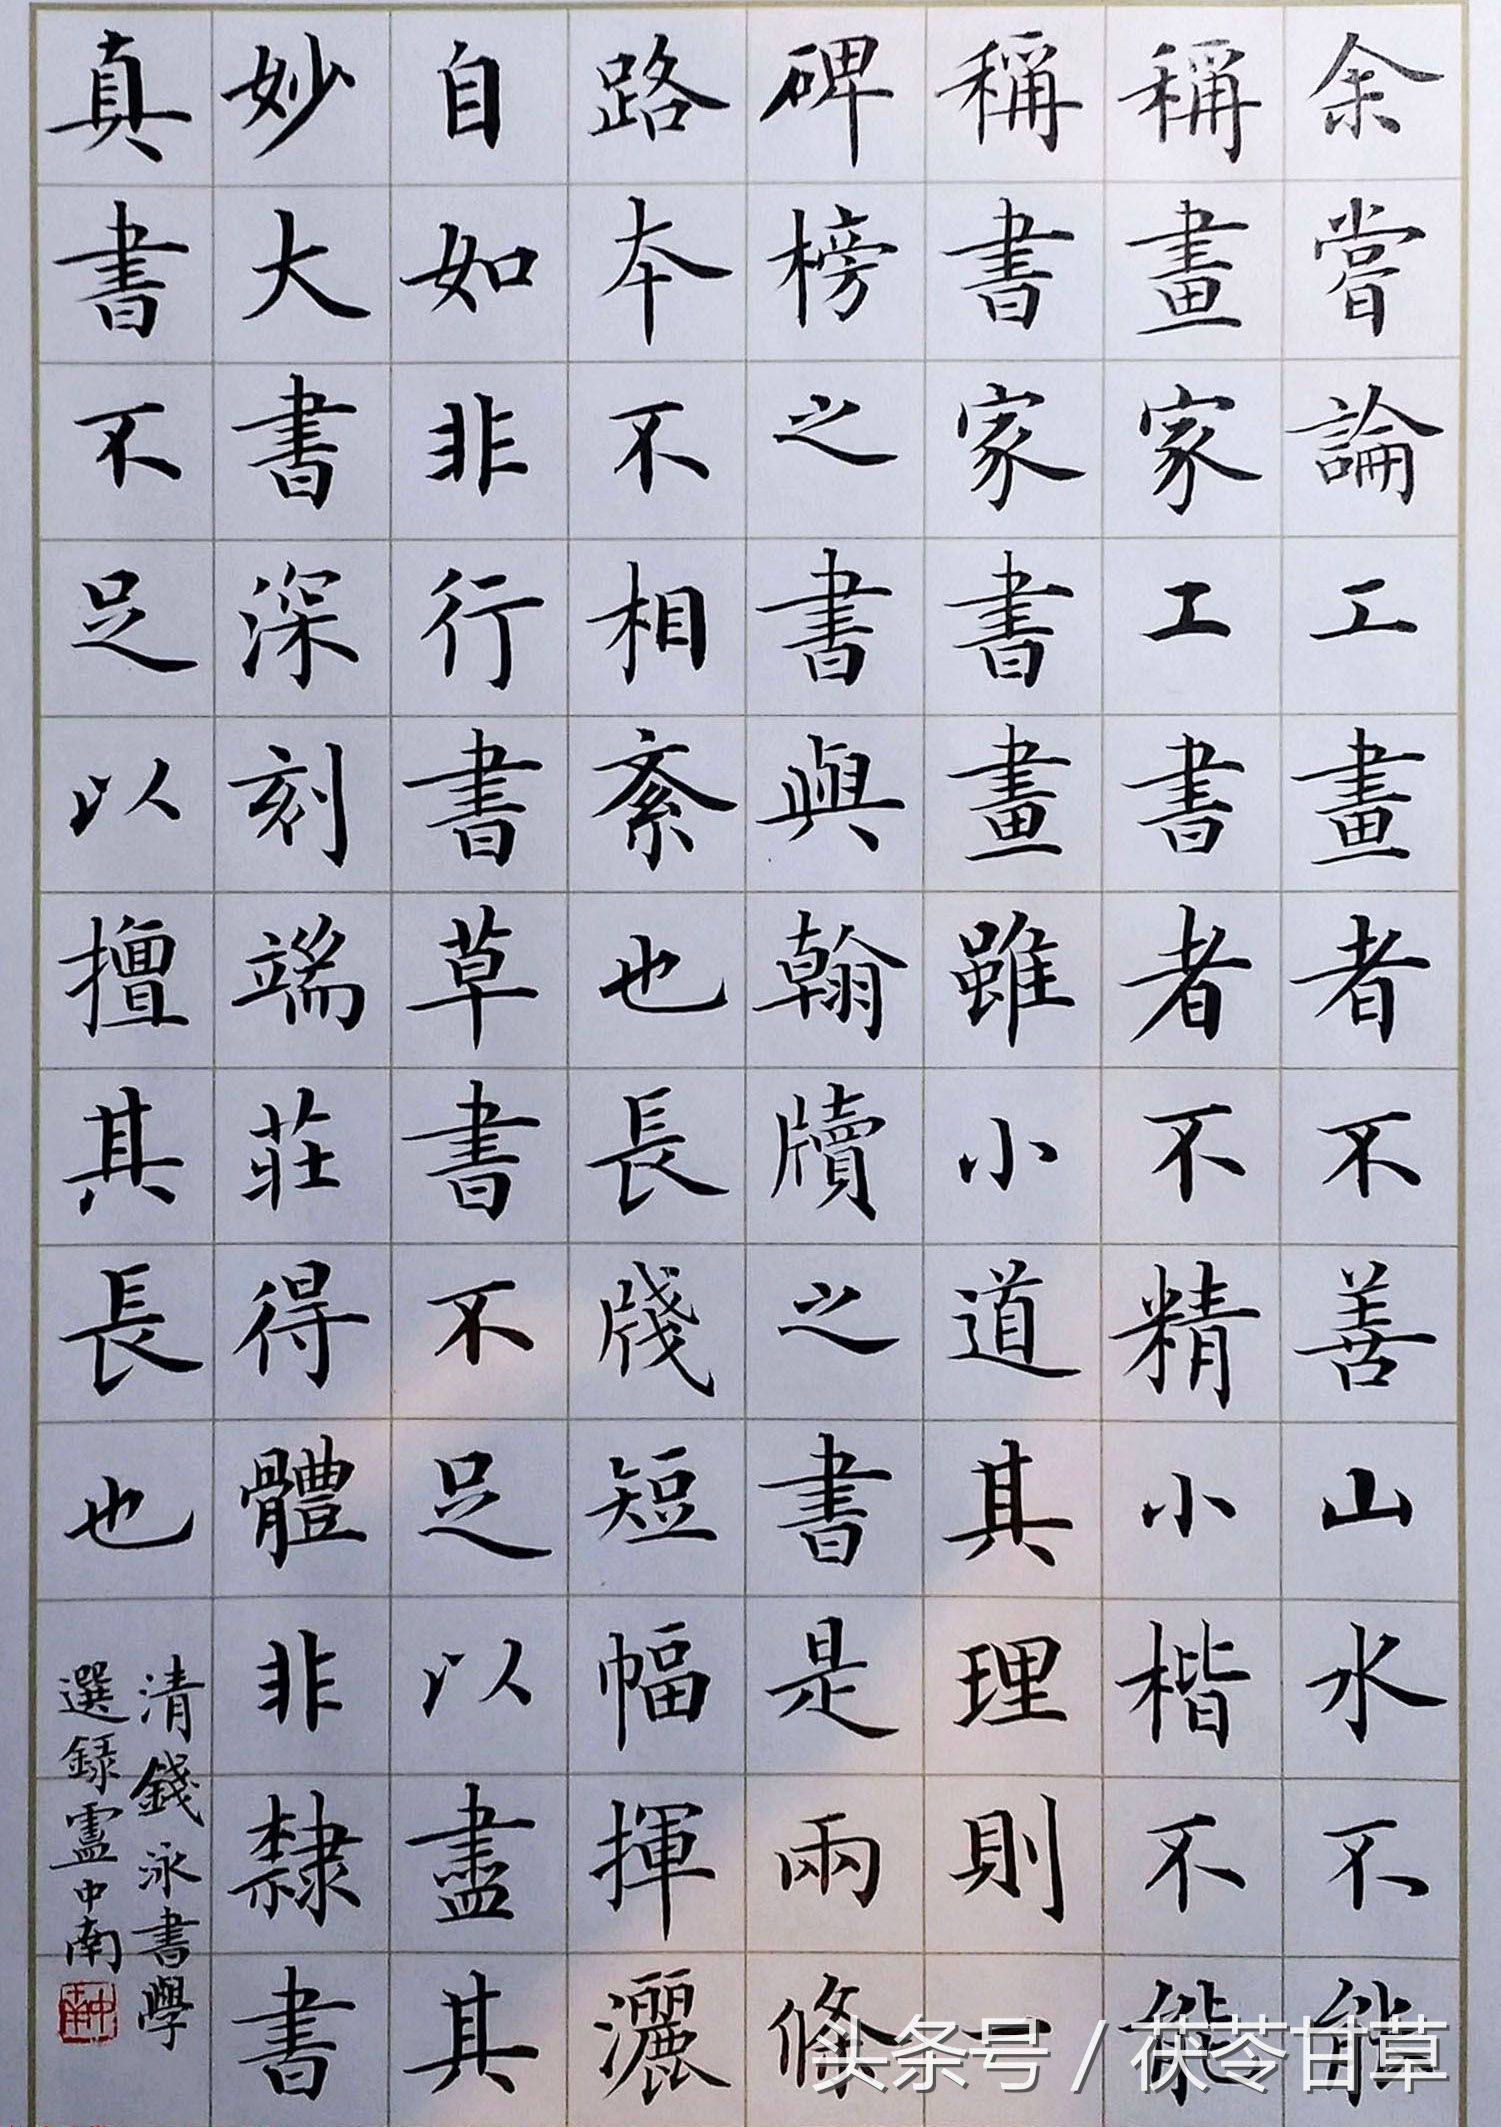 余嘗論工畫者不善山水不能
稱畫家工書者不精小楷不能
稱書家書畫雖小道其理則一
碑榜之書與翰牘之書是兩條
路本不相紊也長牋短幅揮灑
自如非行書草書不足以盡其
妙大書深刻端莊得體非隸書
真書不足以擅其長也
清錢泳書學
選錄盧中南
中南
头条号 / 茯苓甘草